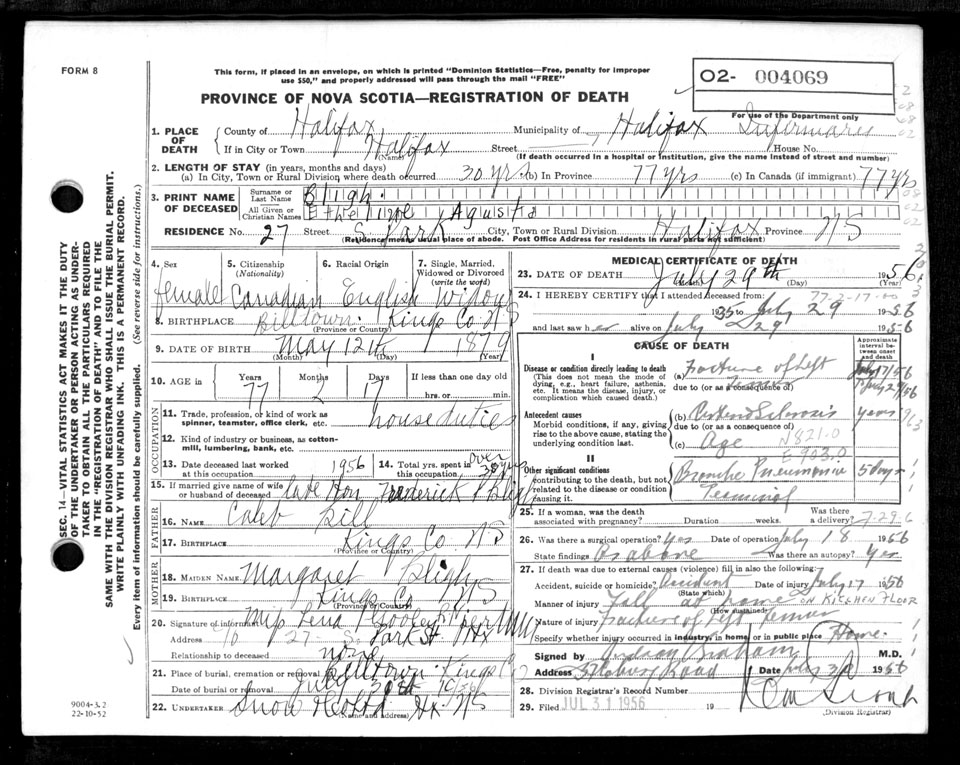 FORM 8
This form, if placed in an envelope, on which is printed "Dominion Statistics—Free, penalty for improper
use $50," and properly addressed will pass through the mail "FREE"
O2- 004069
PROVINCE OF NOVA SCOTIA—REGISTRATION OF DEATH
For use of the Department only
1. PLACE OF DEATH
County of Halifax Municipality of Halifax Infirmary
If in City or Town Halifax Street House No.
(Name) (If death occurred in a hospital or institution, give the name instead of street and number)
2. LENGTH OF STAY (in years, months and days)
(a) In City, Town or Rural Division where death occurred 30 yrs (b) In Province 77 yrs (c) In Canada (if immigrant) 77 yrs
3. PRINT NAME OF DECEASED
Surname or Last Name Bligh
All Given or Christian Names Etheline Agusta
RESIDENCE No. 27 Street S Park City, Town or Rural Division Halifax Province NS
(Residence means usual place of abode. Post Office Address for residents in rural parts not sufficient)
4. Sex
female
5. Citizenship
(Nationality)
Canadian
6. Racial Origin
English
7. Single, Married,
Widowed or Divorced
(write the word)
Widow
8. BIRTHPLACE Billtown Kings Co NS
(Province or Country)
9. DATE OF BIRTH May 12th 1879
(Month) (Day) (Year)
10. AGE in Years Months Days If less than one day old
77 2 17 hrs. or min.
OCCUPATION
11. Trade, profession, or kind of work as
spinner, teamster, office clerk, etc. house duties
12. Kind of industry or business, as cotton-
mill, lumbering, bank, etc.
13. Date deceased last worked
at this occupation 1956
14. Total yrs. spent in
this occupation over 30 yrs
15. If married give name of wife
or husband of deceased late Hon Frederick P Bligh
FATHER
16. NAME Caleb Bill
17. Birthplace Kings Co NS
(Province or Country)
MOTHER
18. MAIDEN NAME Margaret Bligh
19. BIRTHPLACE Kings Co NS
(Province or Country)
20. Signature of informant Mrs Lena
Address 27 S. Park St Hfx
Relationship to deceased none
21. Place of burial, cremation or removal Billtown Kings C
Date of burial or removal July 30th 1956
22. UNDERTAKER Snow Hfx NS
(Name and address)
MEDICAL CERTIFICATE OF DEATH
23. DATE OF DEATH July 29th 1956
(Month) (Day) (Year)
77-2-17-00
24. I HEREBY CERTIFY that I attended deceased from:
1935 to July 29 1956
and last saw her alive on July 29 1956
CAUSE OF DEATH
Approximate interval between onset and death
I
Disease or condition directly leading to death
(This does not mean the mode of
dying, e.g., heart failure, asthenia,
etc. It means the disease, injury, or
complication which caused death.)
(a) Fracture of left femur
July 17/56
to July 29/56
due to (or as a consequence of)
Antecedent causes
Morbid conditions, if any, giving
rise to the above cause, stating the
underlying condition last.
(b) years
due to (or as a consequence of)
(c) Age N821.0
E903.0
II
Other significant conditions
contributing to the death, but not
related to the disease or condition
causing it.
Broncho Pneumonia 5 days
Terminal
25. If a woman, was the death
associated with pregnancy? Duration weeks. Was there
a delivery? 7-29-6
26. Was there a surgical operation? Yes Date of operation July 18 1956
State findings As above Was there an autopsy? Yes
27. If death was due to external causes (violence) fill in also the following:
Accident, suicide or homicide? Accident Date of injury July 17 1956
(State which)
Manner of injury Fall at home ON KITCHEN FLOOR
(How sustained)
Nature of injury Fracture of left femur
Specify whether injury occurred in industry, in home or in public place Home
Signed by Graham M.D.
Address Road Date July 30 1956
28. Division Registrar's Record Number
29. Filed JUL 31 1956 19
(Division Registrar)
SEC. 14—VITAL STATISTICS ACT MAKES IT THE DUTY
OF THE UNDERTAKER OR PERSON ACTING AS UNDER-
TAKER TO OBTAIN ALL THE PARTICULARS REQUIRED
IN THE "REGISTRATION OF DEATH" AND TO FILE THE
SAME WITH THE DIVISION REGISTRAR WHO SHALL ISSUE THE BURIAL PERMIT.
WRITE PLAINLY WITH UNFADING INK. THIS IS A PERMANENT RECORD.
Every item of information should be carefully supplied. (See reverse side for instructions.)
9004-3.2
22-10-52